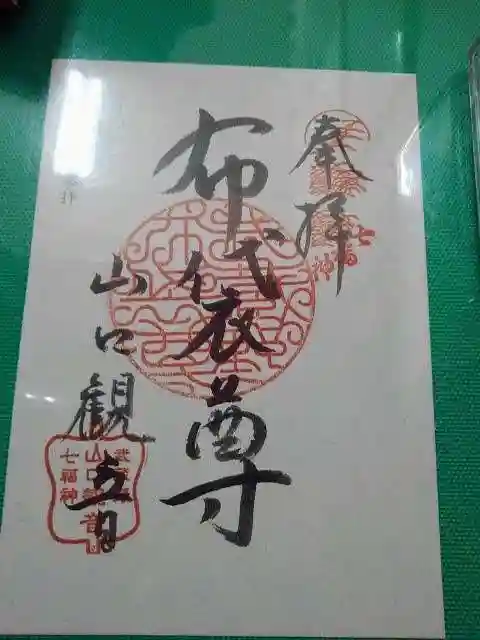 奉拝
七福神
布袋尊
山口観音
武蔵野
山口観音
七福神